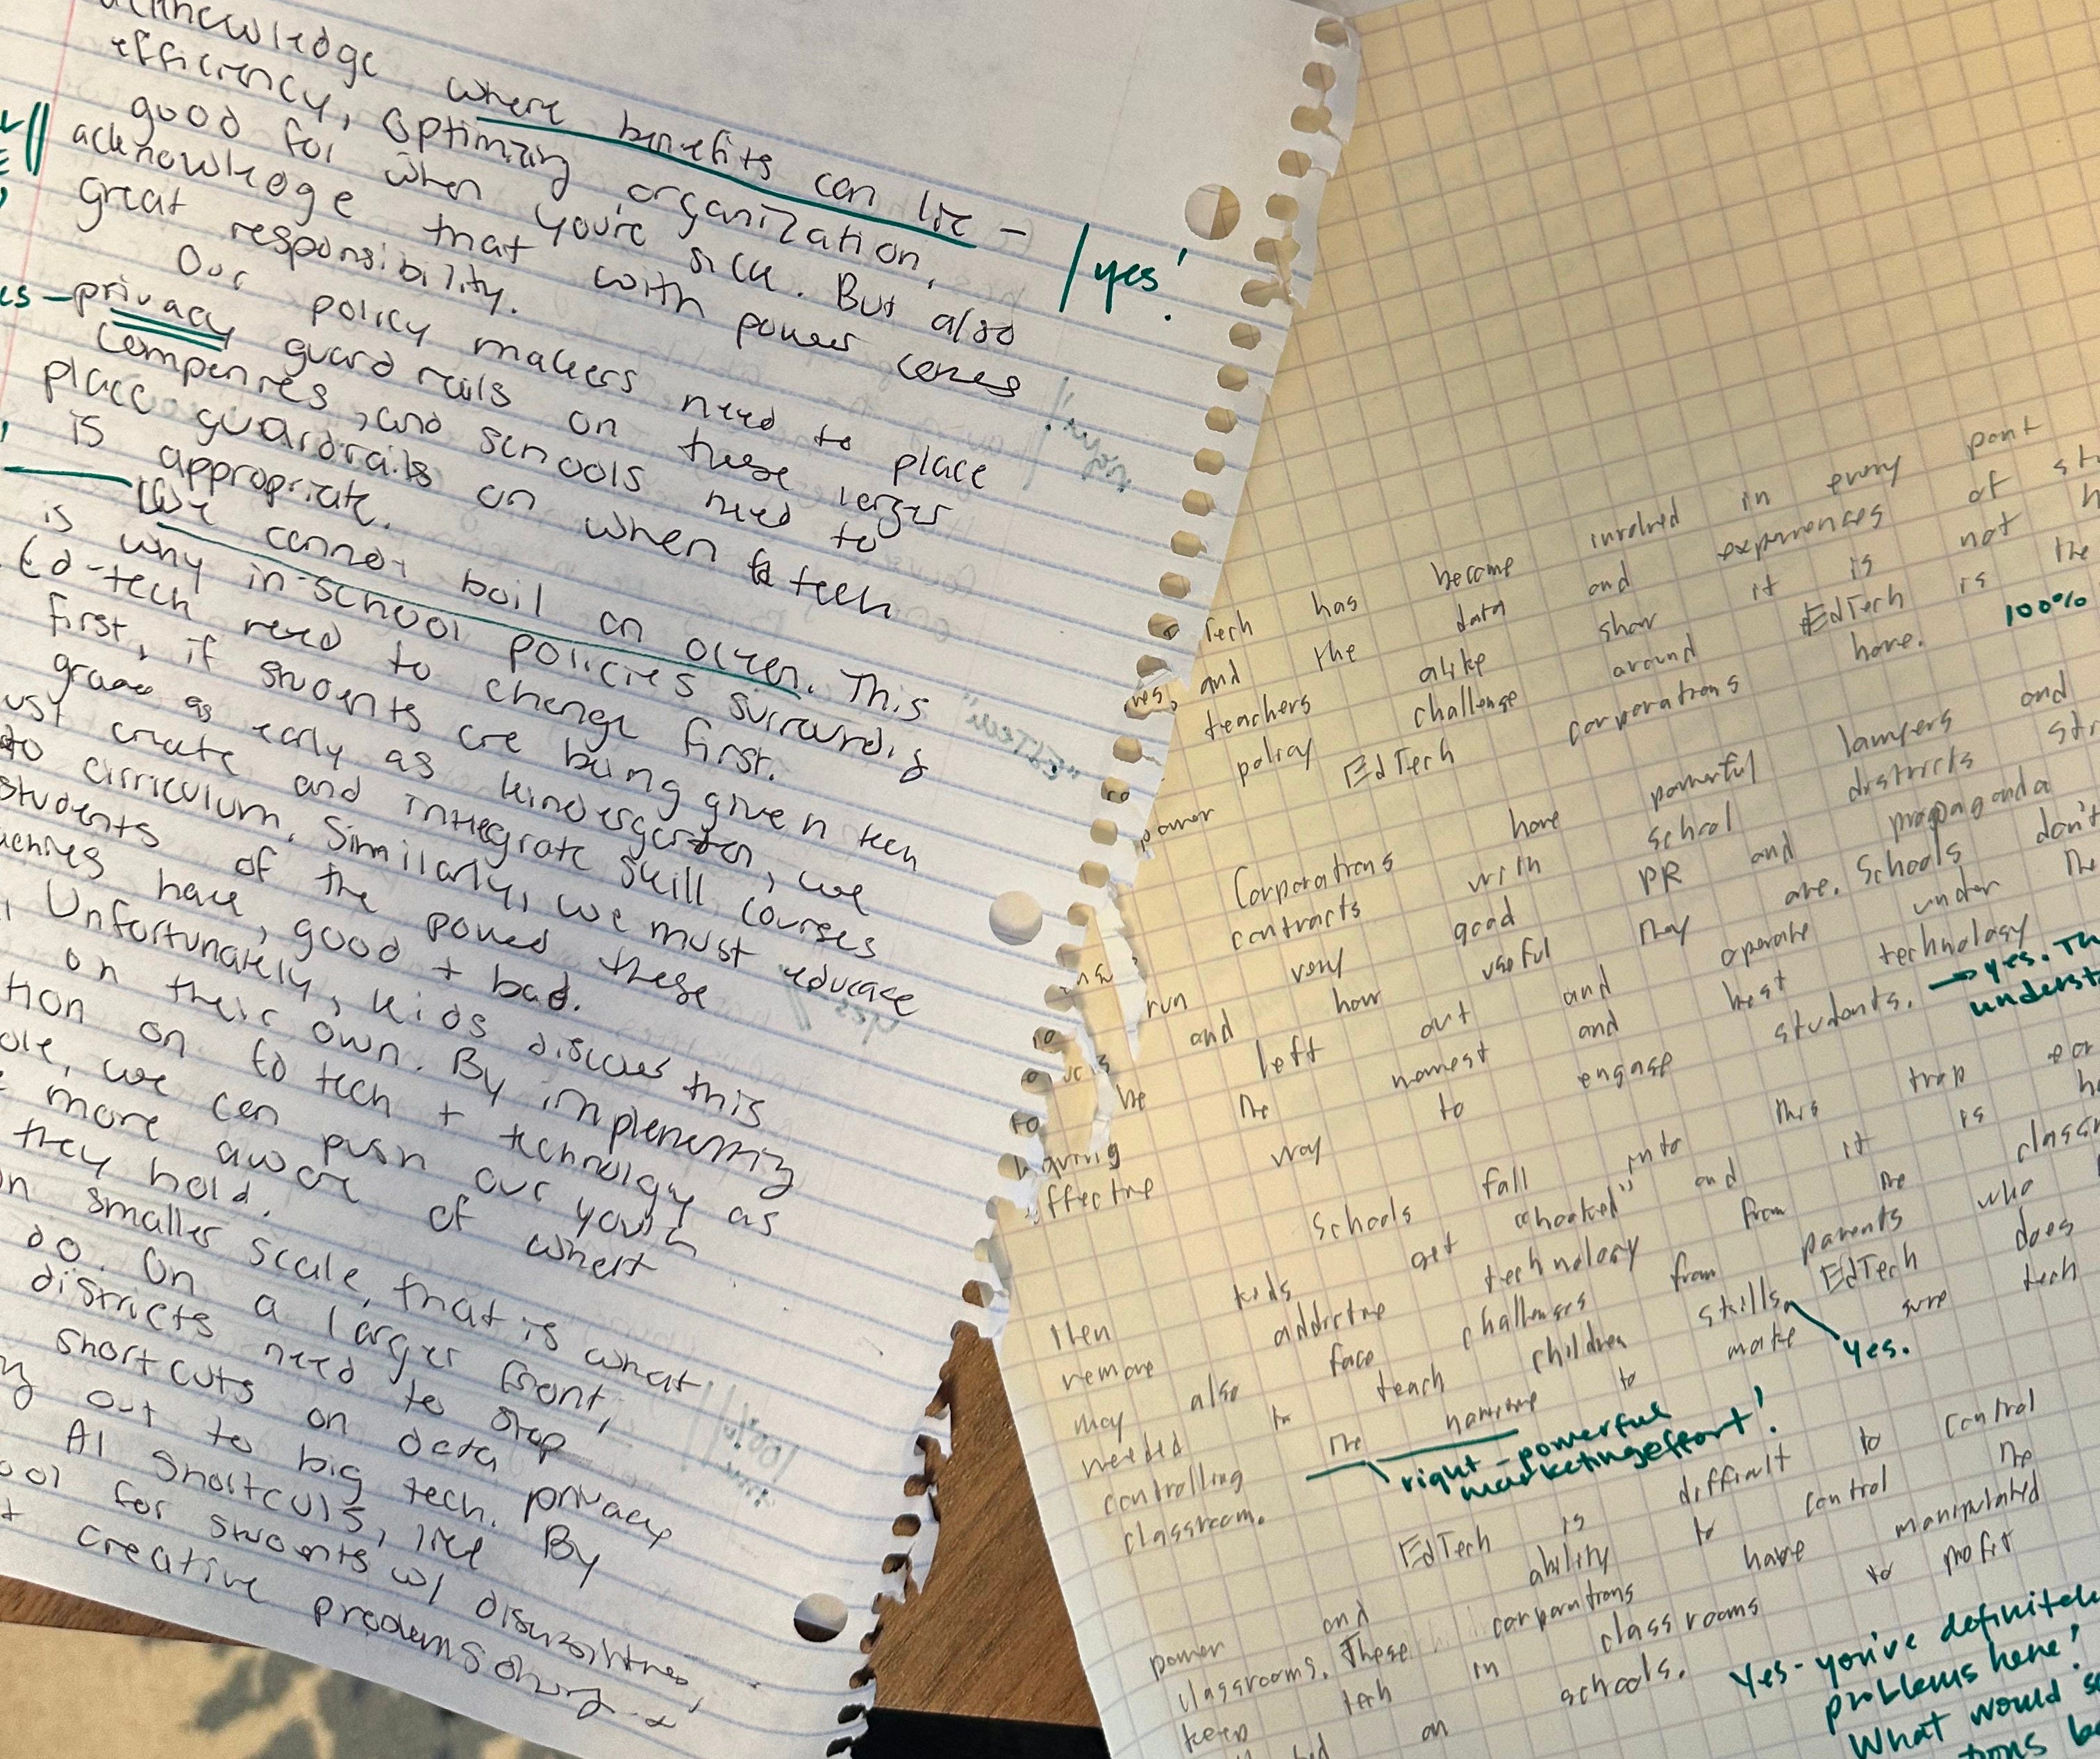 acknowledge where benefits can lie -
efficiency, optimizing organization,
good for when you're sick. But also
acknowledge that with power comes
great responsibility.
yes!
Our policy makers need to place
privacy guard rails on these larger
compenies, and schools need to
place guardrails on when tech
is appropriate.
We cannot boil an ocean. This
is why in-school policies surroundig
Ed-tech need to change first.
First, if students are being given tech
grade as early as kindergarten, we
ust create and integrate skill courses
to cirriculum. Similarly, we must educate
students of the power these
have, good + bad.
Unfortunately, kids discover this
on their own. By implementing
tion on to tech + technology as
ole, we can push our youth
more aware of what
they hold.
n smaller scale, that is what
do. On a larger front,
districts need to stop
shortcuts on data privacy
out to big tech. By
AI shortcuts, like
ool for students w/ disabilities,
creative problemsolving
Tech has become involved in every
and the data and experiences of
teachers alike show it is not
policy challenge around EdTech is the
power EdTech corporations have.
100%
Corporations have powerful lawyers and
contracts with school districts
run very good PR and propaganda
and how useful they are. Schools don't
left out and operate under the
be the newest and best technology
having way to engage students.
ffective
→ yes.
underst
Schools fall into this trap
then kids get "hooked" and it is
remove addictive technology from the
may also face challenges from parents who
needed to teach children skills. EdTech does
controlling the narrative to make sure tech
classroom.
Yes.
right - powerful
marketing effort!
EdTech is difficult to control
power and ability to control the
classrooms. These corporations have manipulated
keep tech in classrooms to profit
on schools.
Yes - you've definitely
problems here!
What would